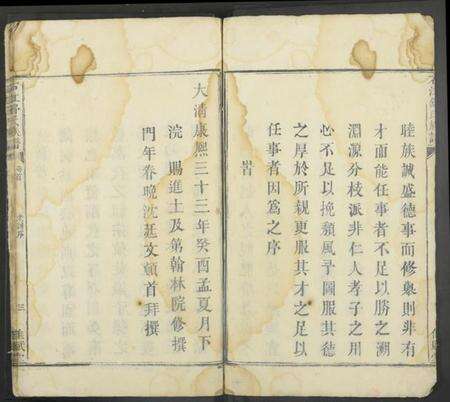 睦族誠盛德事而修舉則非有
才而能任事者不足以勝之溯
淵源分枝派非仁人孝子之用
心不足以挽頹風予固服其德
之厚於所親更服其才之足以
任事者因為之序
旹
大清康熙三十三年癸酉孟夏月下
浣 賜進士及第翰林院修撰
門年眷晚沈廷文頓首拜撰
三